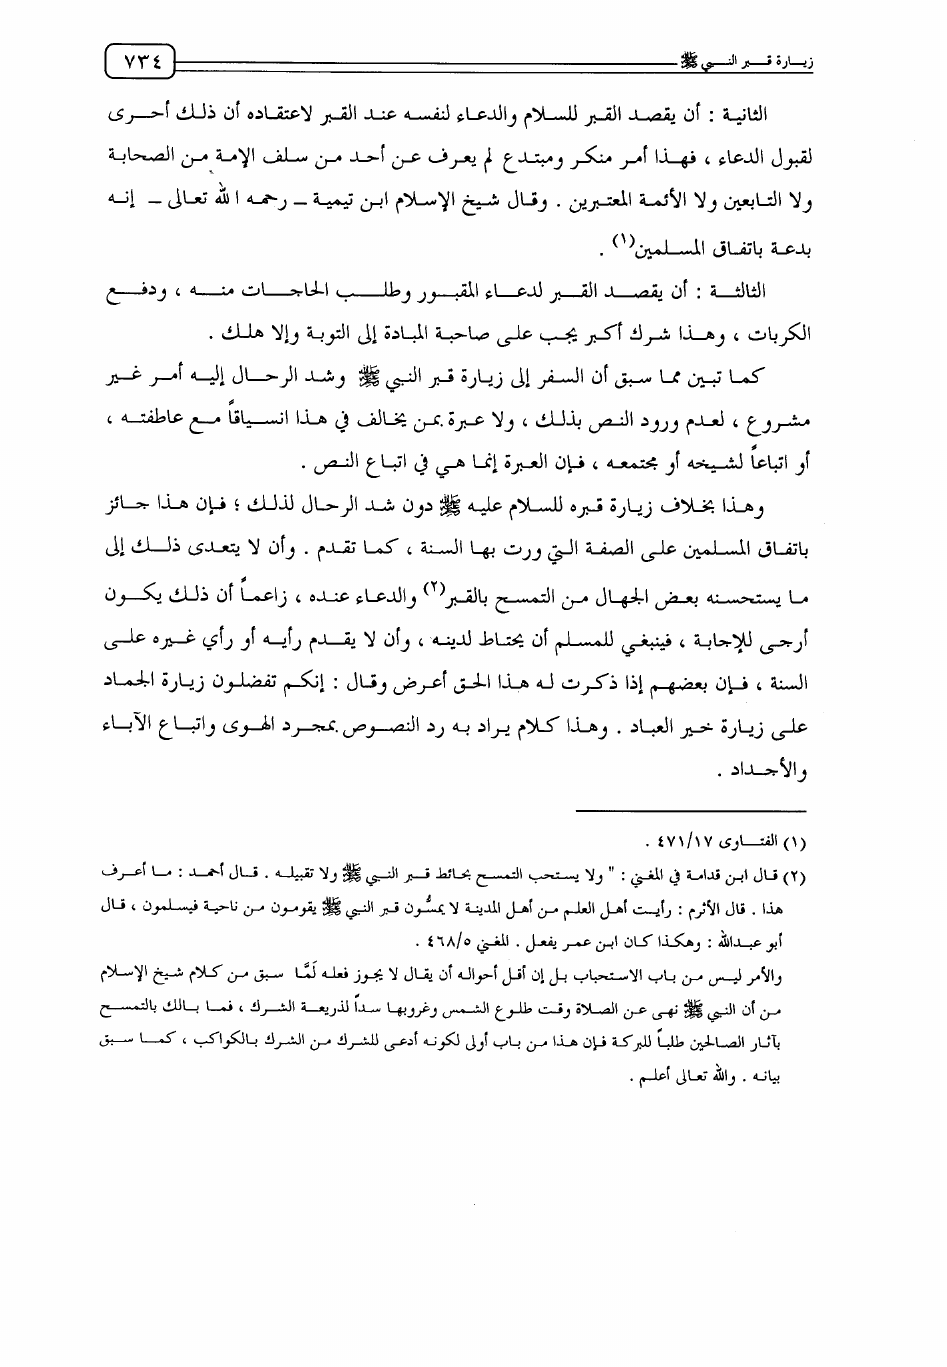 زيارة قبر النبي ﷺ ٧٣٤
الثانية : أن يقصد القبر للسلام والدعاء لنفسه عند القبر لاعتقاده أن ذلك أحرى
لقبول الدعاء ، فهذا أمر منكر ومبتدع لم يعرف عن أحد من سلف الامة من الصحابة
ولا التابعين ولا الأئمة المعتبرين . وقال شيخ الإسلام ابن تيمية – رحمه الله تعالى – إنه
بدعة باتفاق المسلمين(١) .
الثالثة : أن يقصد القبر لدعاء المقبور وطلب الحاجات منه ، ودفع
الكربات ، وهذا شرك أكبر يجب على صاحبة المبادة إلى التوبة وإلا هلك .
كما تبين مما سبق أن السفر إلى زيارة قبر النبي ﷺ وشد الرحال إليه أمر غير
مشروع ، لعدم ورود النص بذلك ، ولا عبرة بمن يخالف في هذا انسياقاً مع عاطفته ،
أو اتباعاً لشيخه أو مجتمعه ، فإن العبرة إنما هي في اتباع النص .
وهذا بخلاف زيارة قبره للسلام عليه ﷺ دون شد الرحال لذلك ؛ فإن هذا جائز
باتفاق المسلمين على الصفة التي ورت بها السنة ، كما تقدم . وأن لا يتعدى ذلك إلى
ما يستحسنه بعض الجهال من التمسح بالقبر(٢) والدعاء عنده ، زاعماً أن ذلك يكون
أرجى للإجابة ، فينبغي للمسلم أن يحتاط لدينه ، وأن لا يقدم رأيه أو رأي غيره على
السنة ، فإن بعضهم إذا ذكرت له هذا الحق أعرض وقال : إنكم تفضلون زيارة الجماد
على زيارة خير العباد . وهذا كلام يراد به رد النصوص بمجرد الهوى واتباع الآباء
والأجداد .
(١) الفتاوى ٤٧١/١٧ .
(٢) قال ابن قدامة في المغني : " ولا يستحب التمسح بحائط قبر النبي ﷺ ولا تقبيله . قال أحمد : ما أعرف
هذا . قال الأثرم : رأيت أهل العلم من أهل المدينة لا يمسُّون قبر النبي ﷺ يقومون من ناحية فيسلمون ، قال
أبو عبدالله : وهكذا كان ابن عمر يفعل . المغني ٤٦٨/٥ .
والأمر ليس من باب الاستحباب بل إن أقل أحواله أن يقال لا يجوز فعله لَمَّا سبق من كلام شيخ الإسلام
من أن النبي ﷺ نهى عن الصلاة وقت طلوع الشمس وغروبها سداً لذريعة الشرك ، فما بالك بالتمسح
بآثار الصالحين طلباً للبركة فإن هذا من باب أولى لكونه أدعى للشرك من الشرك بالكواكب ، كما سبق
بيانه . والله تعالى أعلم .